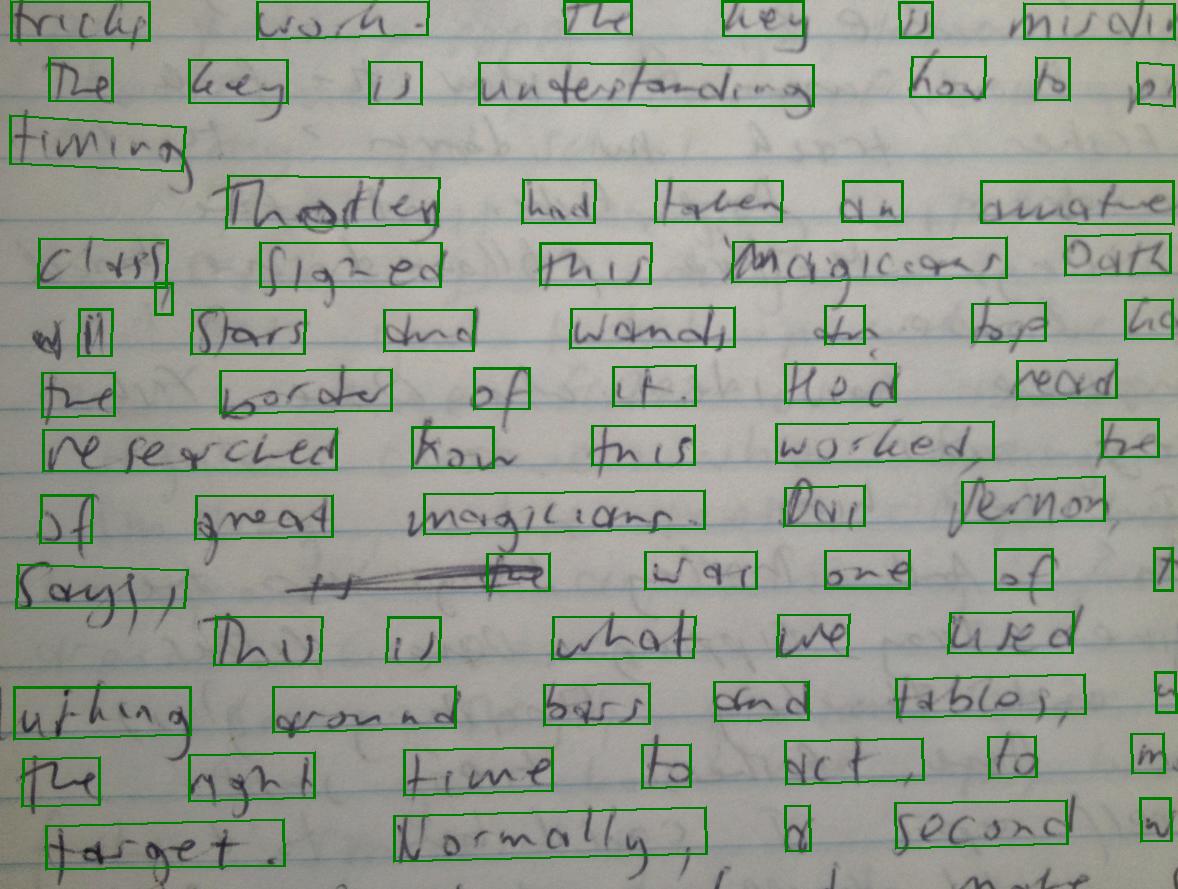 tricks work. The key is misdi
The key is understanding how to p
timing
Thortley had taken an amate
class, signed this magicians Oath
Stars and wands, an top ha
the border of it. Had read
researched how this worked, the
of great magicians. Dai Vernon,
Says, was one of t
This is what we used
around bars and tables,
the right time to act, to m
target. Normally, a second w